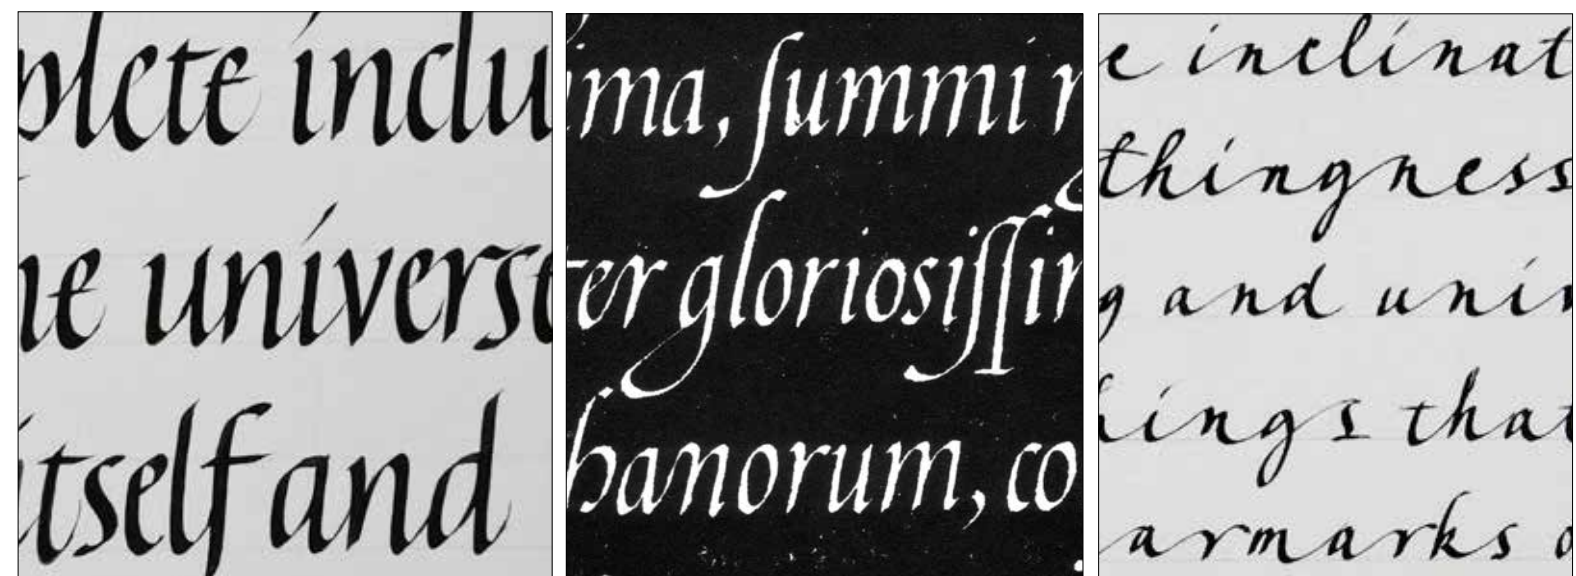 plete inclu
he universe
itself and
ima, ſummi n
ter gloriosiſſim
hanorum, co
e inclinat
thingness
g and univ
hings that
armarks o